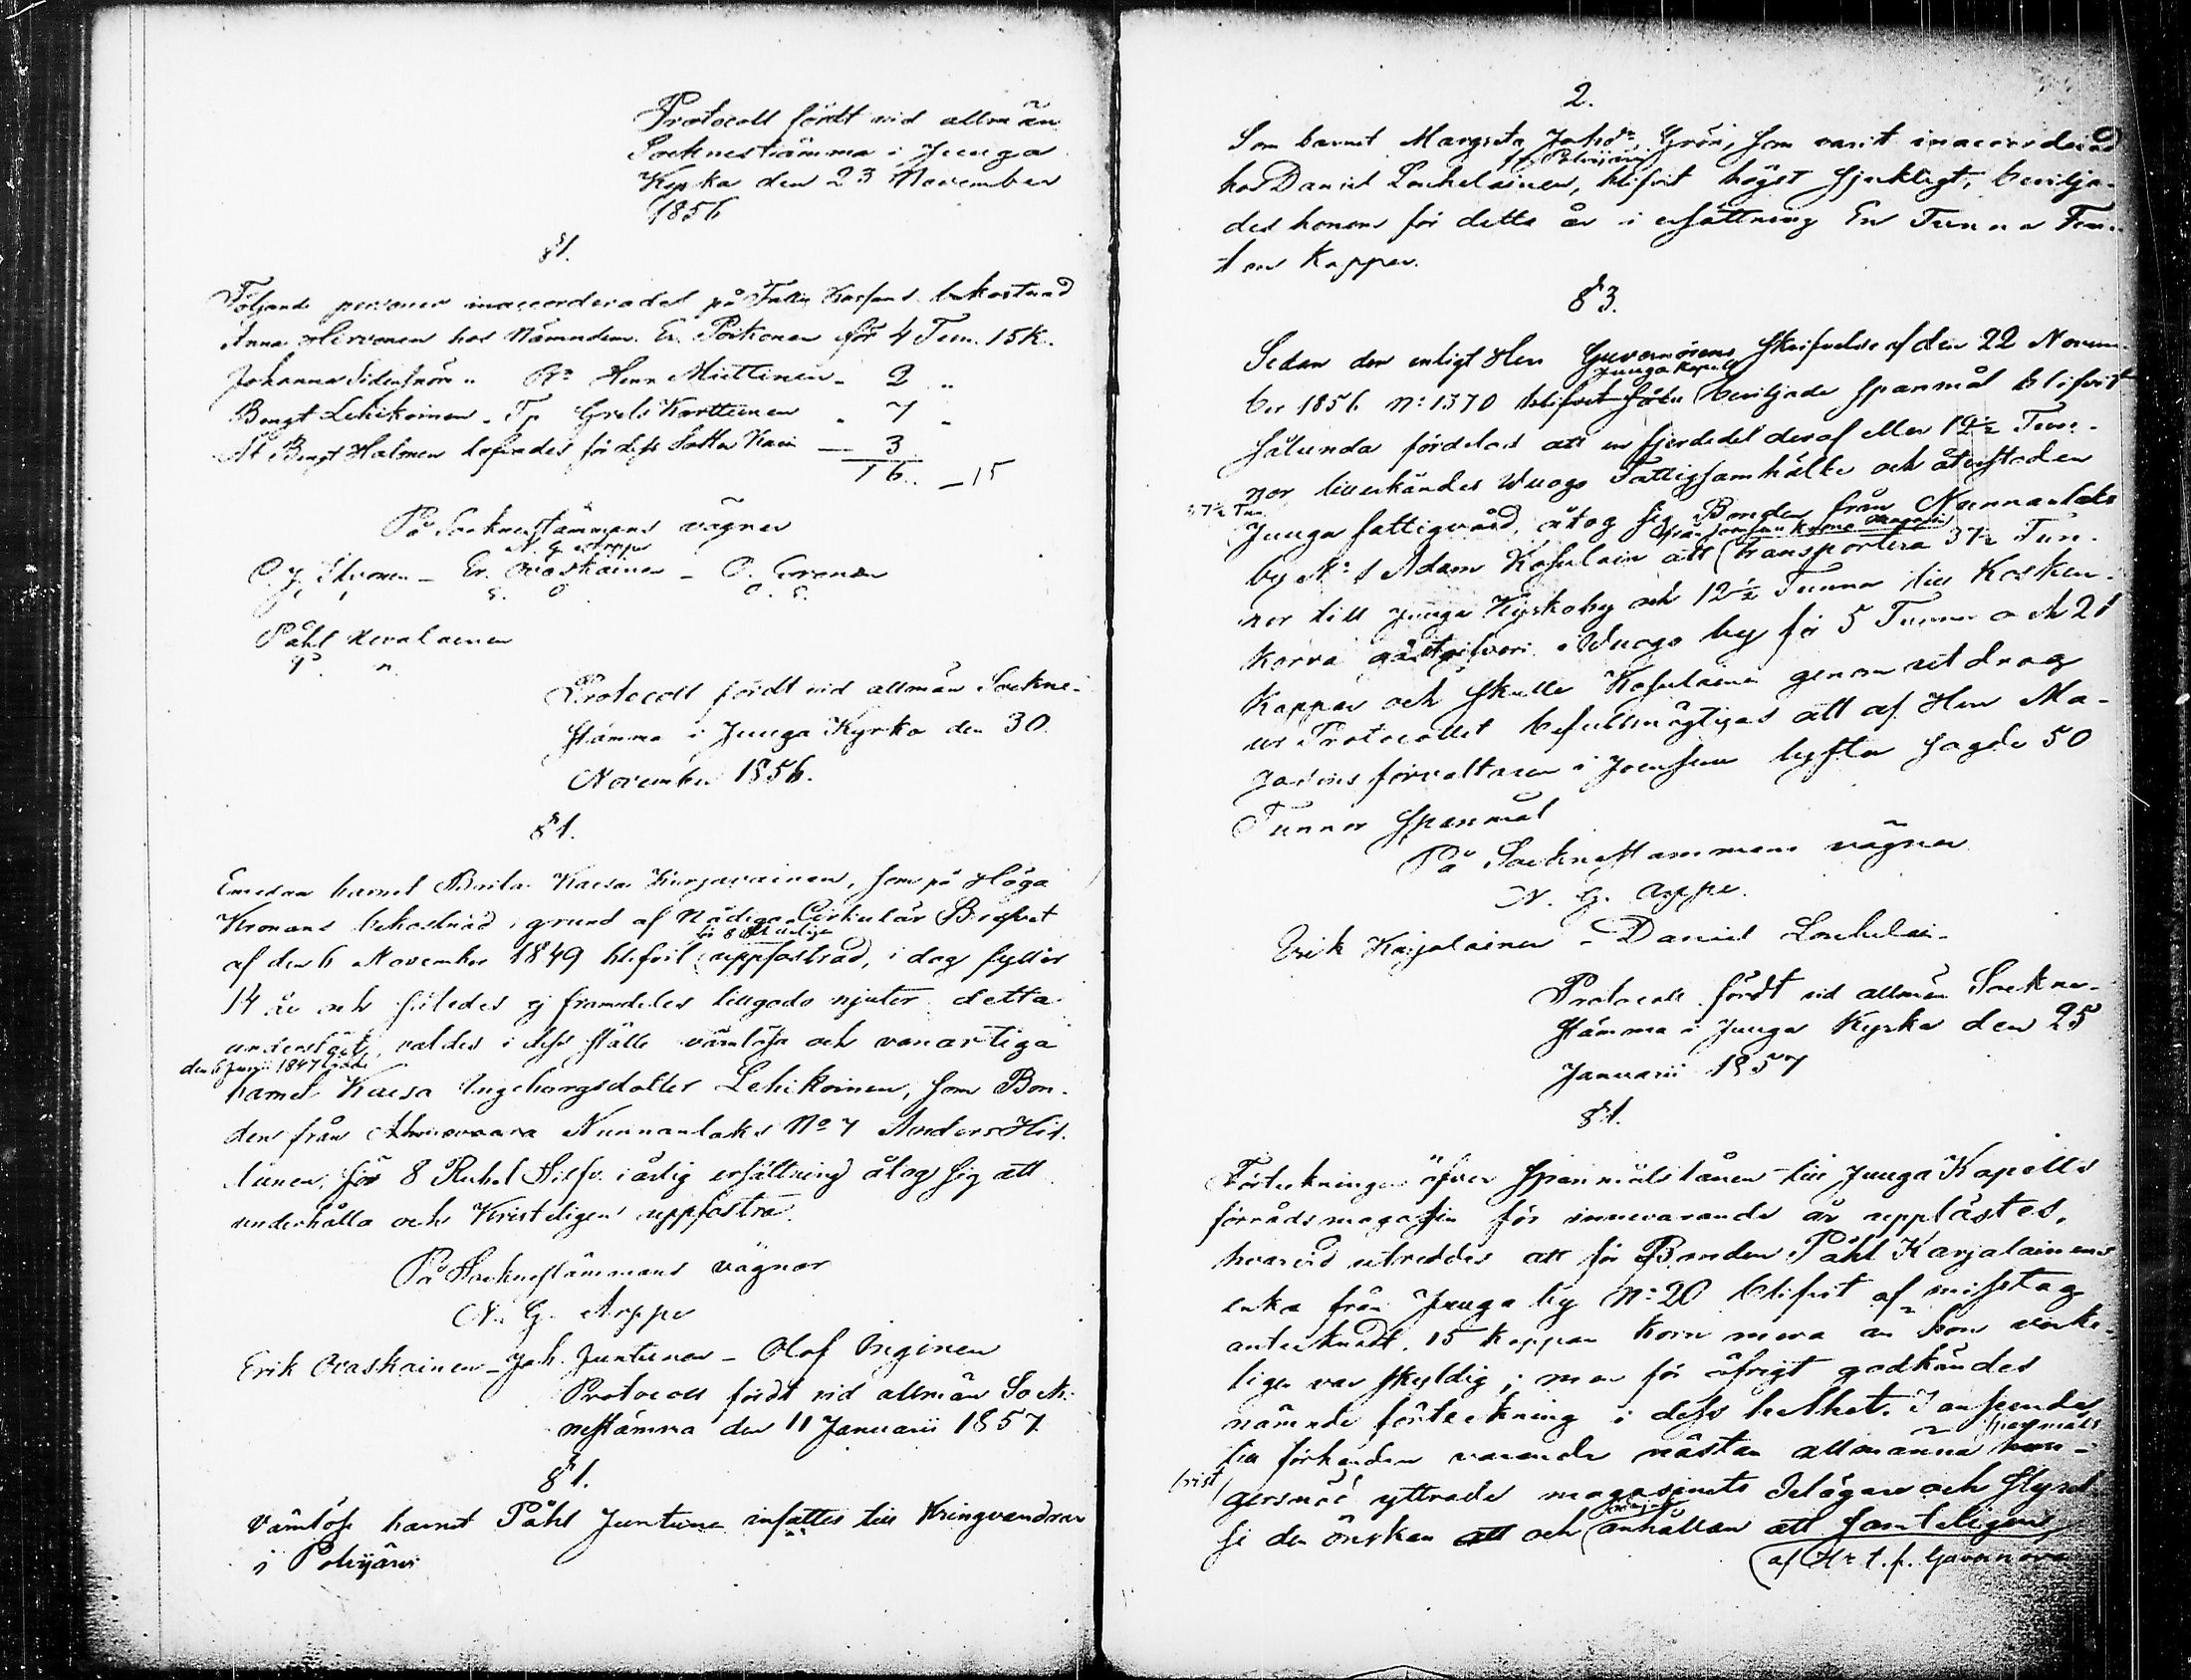 Protocoll fördt vid allmän
Socknestämma i Juuga
Kyrka den 23 November
1856
§1.
Följande personer inaccorderades på Fattig Kassans bekostnad
Anna Hirvonen hos Nämndem. Er. Poikonen för 4 Tun. 15 k.
Johanna Sidensnöre " Bn Henr Miettinen - 2 "
Bengt Lehikoinen - Tp Grels Karttunen " 7 "
At Bengt Halonen lofvades för dess Dotter Kaisa — 3
16 " — 15
På Socknestämmans vägnar
N. G. Arppe
O. J. Ikonen — Er. Ovaskainen — O. Evonen
Påhl Nevalainen
Protocoll fördt vid allmän Sockne-
stämma i Juuga Kyrka den 30
November 1856.
§1.
Emedan barnet Brita Kaisa Kurjavainen, som på Höga
Kronans bekostnad i grund af Nådiga Cirkulär Brefvet
af den 6 November 1849 blifvit uppfostrad, i dag fyller
14 år och således ej framdeles tillgodo njuter detta
understöd, valdes i dess ställe värnlösa och vanartiga
den 6 Junii 1847 födde
barnet Kaisa Ingeborgsdotter Lehikoinen, som Bon-
den från Ahmovaara Nunnanlaks No 7 Anders Hil-
tunen, för 8 Rubel Silfv. i årlig ersättning åtog sig att
underhålla och Kristeligen uppfostra.
På Socknestämmans vägnar
N. G. Arppe
Erik Ovaskainen — Joh. Juntunen — Olof Inginen
Protocoll fördt vid allmän Sock-
nestämma den 11 Januarii 1857
§1.
Värnlösa barnet Påhl Juntunen insattes till Kringvandrar
i Polvijärvi
2.
Som barnet Margreta Johsdr Grön, som varit inaccorderad
hos Daniel Louhelainen, blifvit högst sjukligt, bevilja-
des honom för detta år i ersättning En Tunna Fem-
ton Kappar.
§3.
Sedan den enligt Herr Guvernörens skrifvelse af den 22 Novem-
Juuga Kapell
ber 1856 No 1370 beviljade spanmål blifvit
sålunda fördelad att en fjerdedel deraf eller 12½ Tun-
nor tillerkändes Wuogo Fattigsamhälle och återstoden
37½ Tnr
Juuga fattigvård, åtog sig Bonden från Nunnanlaks
från Joensuu Krono Magasin
by No 1 Adam Kosulain att transportera 37½ Tun-
nor till Juuga Kyrkoby och 12½ Tunna till Kosken-
korva gästgifveri i Wuogo by för 5 Tunnor och 21
Kappar och skulle Kosulainen genom utdrag
ur Protocollet befullmägtigas att af Herr Ma-
gasins förvaltaren i Joensuu lyfta sagde 50
Tunnor Spanmål
På Socknestämmans vägnar
N. G. Arppe.
Erik Karjalainen — Daniel Louhelai-
Protocoll fördt vid allmän Sockne-
stämma i Juuga Kyrka den 25
Januarii 1857
§1.
Förteckningen öfver Spanmåls lånen till Juuga Kapells
förrådsmagasin för innevarande år upplästes,
hvarvid utreddes att för Bonden Påhl Karjalainens
enka från Juuga by No 20 blifvit af misstag
antecknadt 15 Kappar Korn mera än hon verke-
ligen var skyldig; men för öfrigt godkändes
nämnde förteckning i dess helhet. I anseende
till förhanden varande nästan allmänna spanmåls
brist yttrade magasinets delägare och styrel-
se den önskan och anhållan att samteligen
af Hr t. f. Guvernören